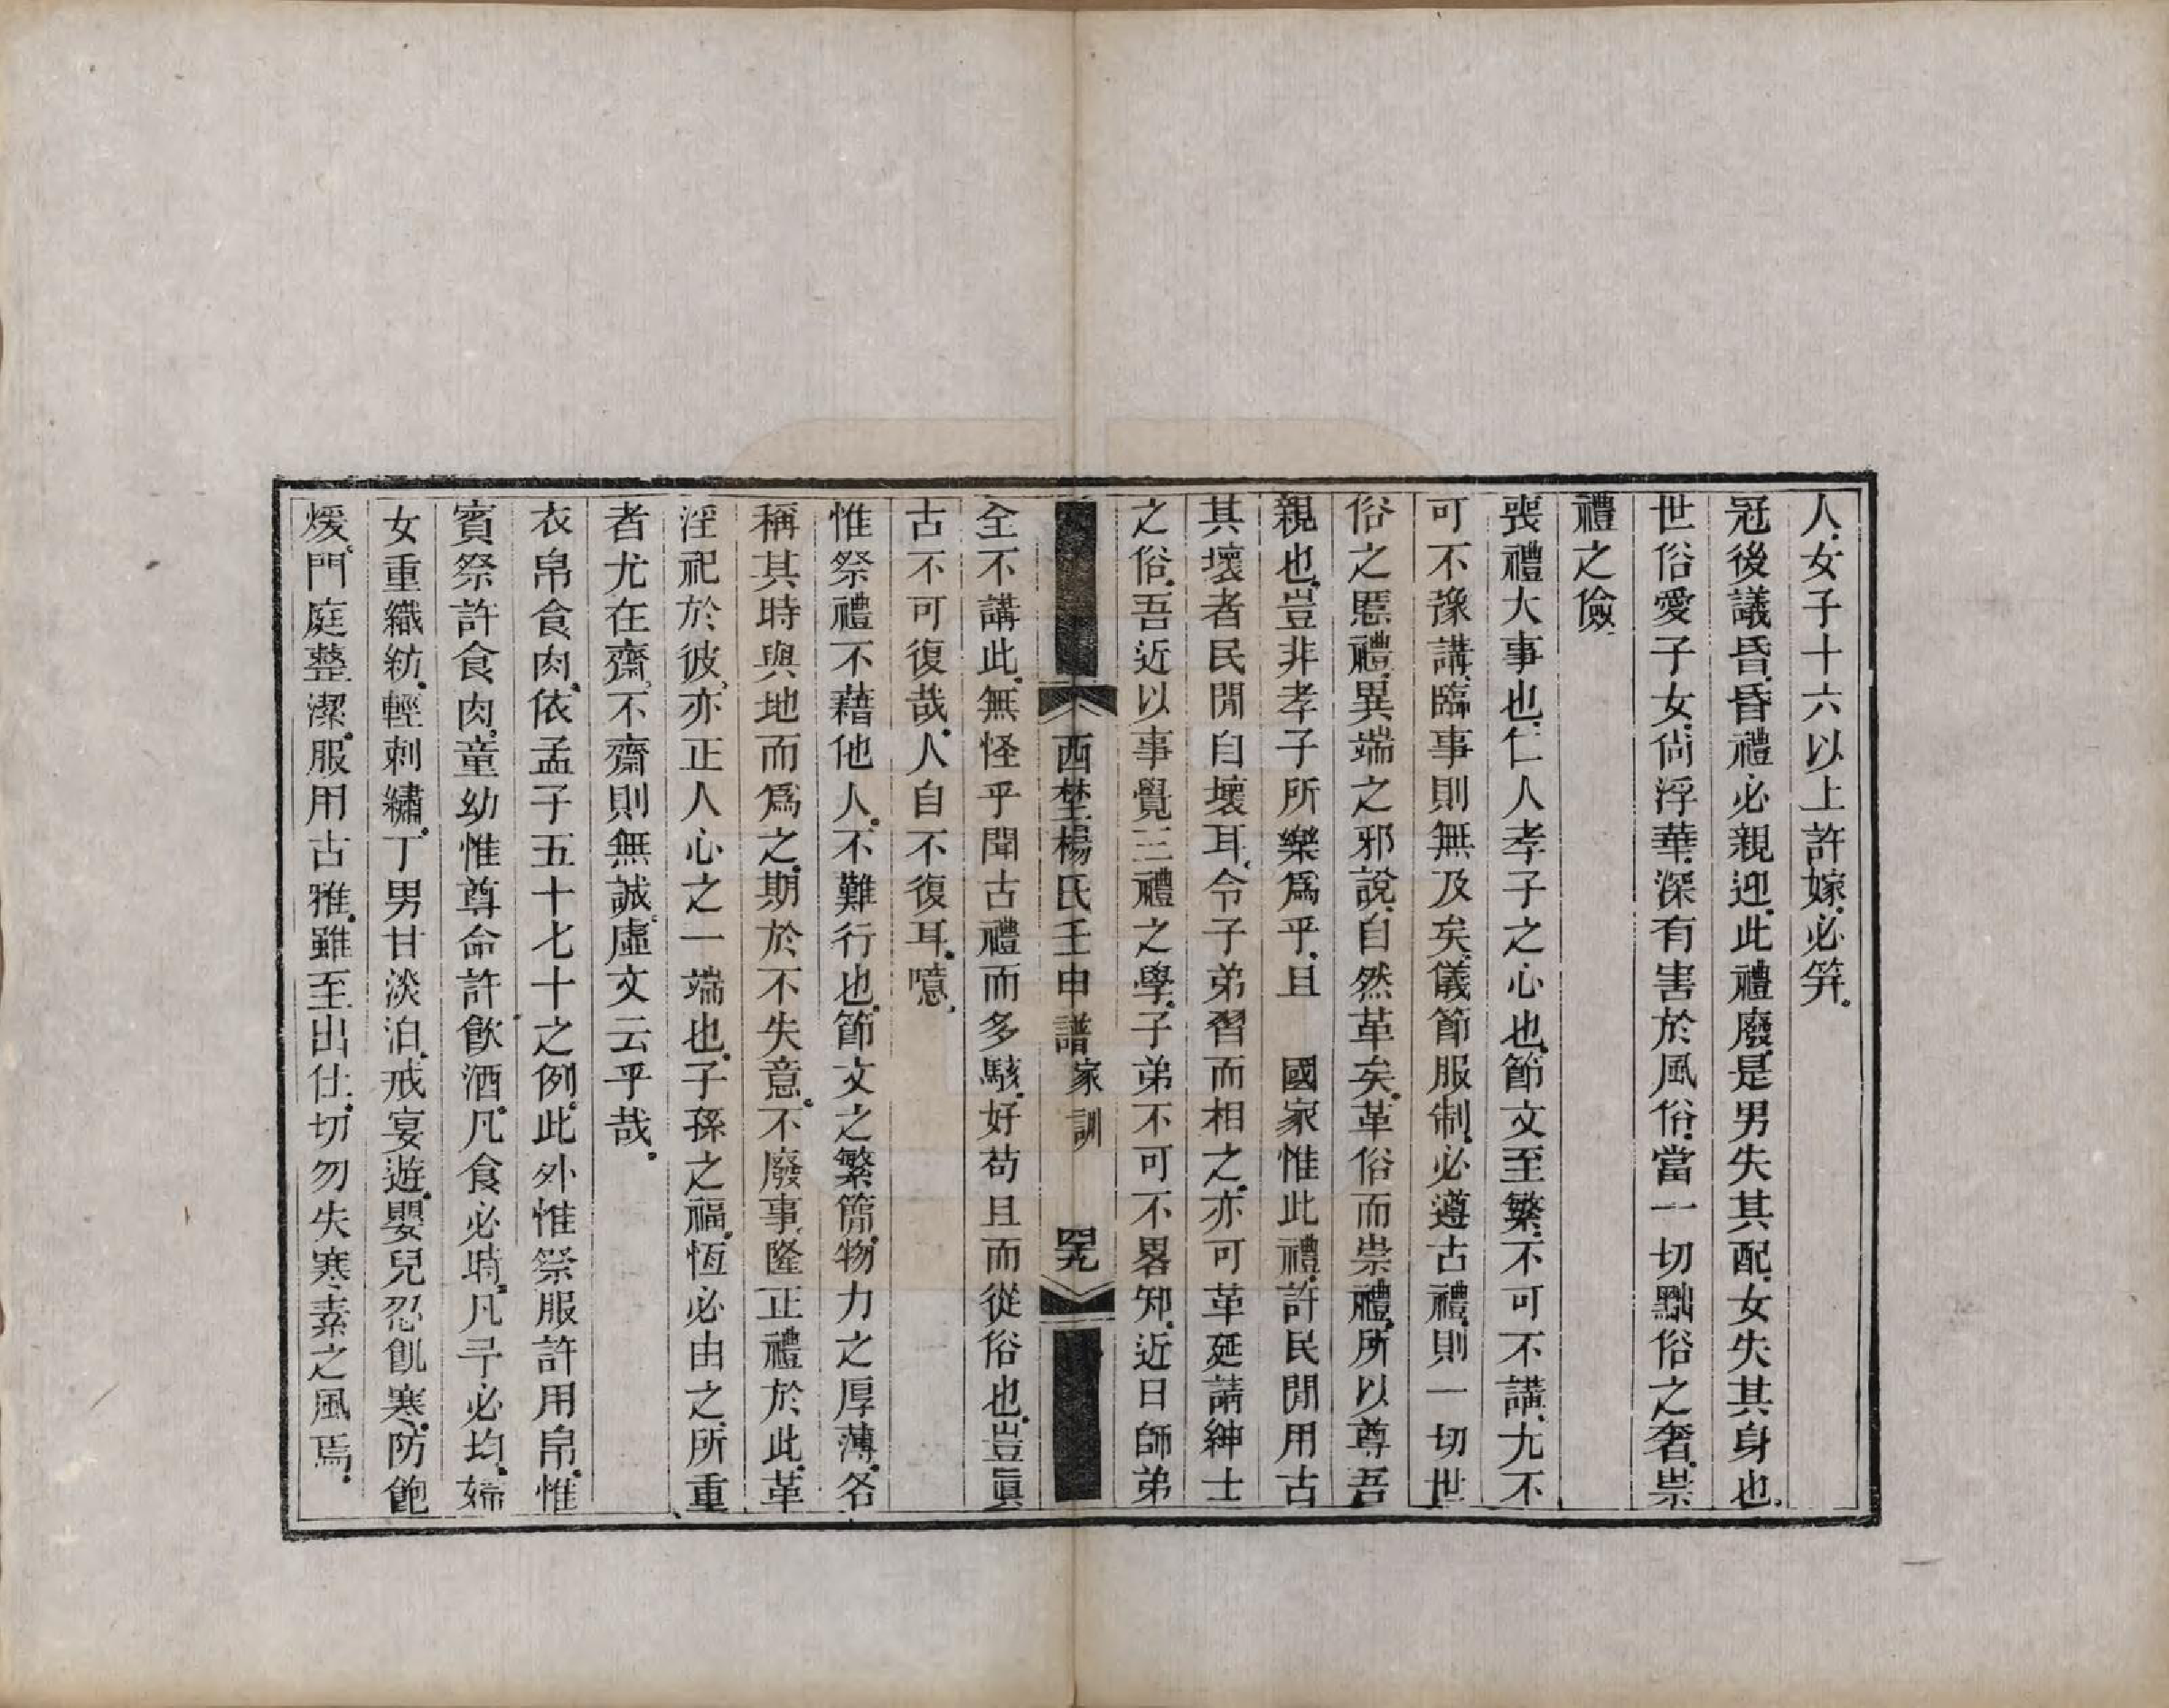 人女子十六以上許嫁必笄
冠後議昏昏禮必親迎此禮廢是男失其配女失其身也
世俗愛子女尚浮華深有害於風俗當一切黜俗之奢崇
禮之儉
喪禮大事也仁人孝子之心也節文至繁不可不講尤不
可不豫講臨事則無及矣儀節服制必遵古禮則一切世
俗之慝禮異端之邪說自然革矣革俗而崇禮所以尊吾
親也豈非孝子所樂爲乎且　國家惟此禮許民間用古
其壞者民間自壞耳令子弟習而相之亦可革延請紳士
之俗吾近以事覺三禮之學子弟不可不畧知近日師弟
西埜楊氏壬申譜家訓　四九
全不講此無怪乎聞古禮而多駭好苟且而從俗也豈眞
古不可復哉人自不復耳噫
惟祭禮不藉他人不難行也節文之繁簡物力之厚薄各
稱其時與地而爲之期於不失意不廢事隆正禮於此革
淫祀於彼亦正人心之一端也子孫之福恆必由之所重
者尤在齋不齋則無誠虛文云乎哉
衣帛食肉依孟子五十七十之例此外惟祭服許用帛惟
賓祭許食肉童幼惟尊命許飮酒凡食必時凡予必均婦
女重織紡輕刺繡丁男甘淡泊戒宴遊嬰兒忍飢寒防飽
煖門庭整潔服用古雅雖至出仕切勿失寒素之風焉